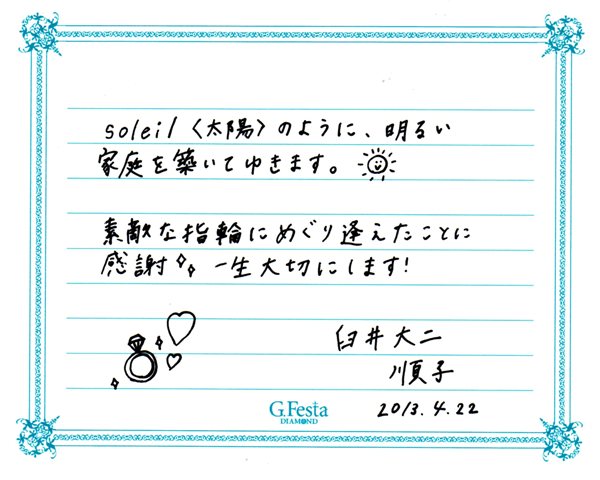 soleil〈太陽〉のように、明るい
家庭を築いてゆきます。
素敵な指輪にめぐり逢えたことに
感謝 一生大切にします!
臼井大二
順子
2013.4.22
G.Festa
DIAMOND